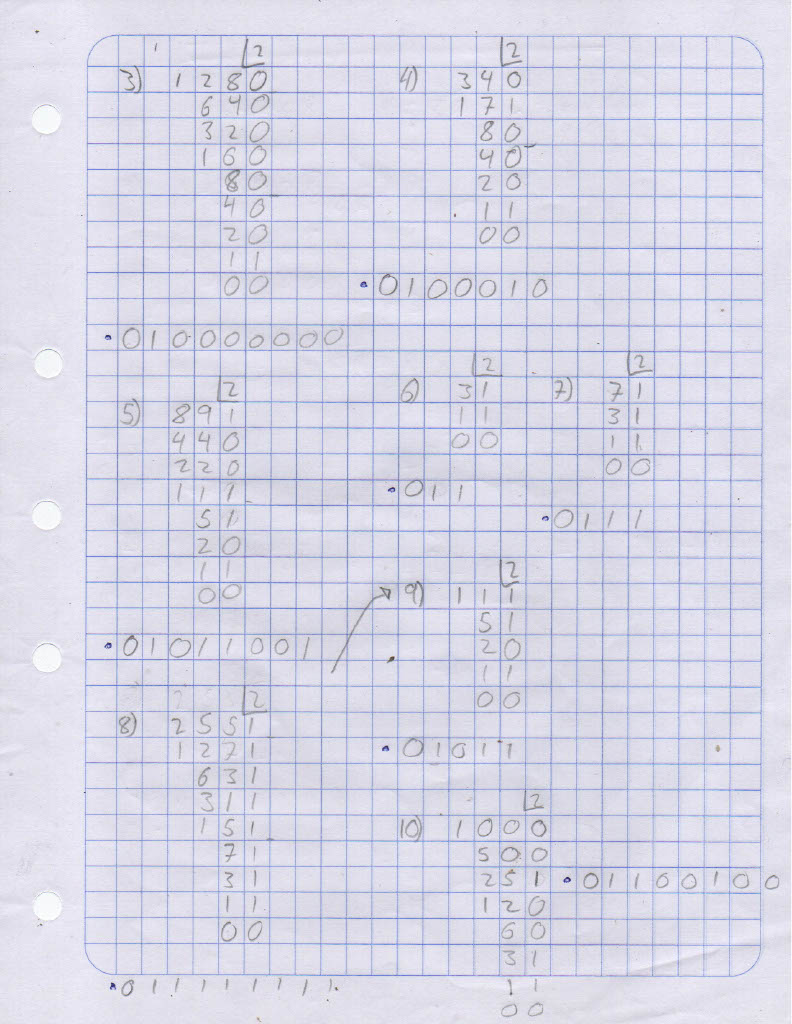 2
3) 1 2 8 0
6 4 0
3 2 0
1 6 0
8 0
4 0
2 0
1 1
0 0
0 1 0 0 0 0 0 0 0
2
4) 3 4 0
1 7 1
8 0
4 0
2 0
1 1
0 0
0 1 0 0 0 1 0
2
5) 8 9 1
4 4 0
2 2 0
1 1 1
5 1
2 0
1 1
0 0
0 1 0 1 1 0 0 1
2
6) 3 1
1 1
0 0
0 1 1
2
7) 7 1
3 1
1 1
0 0
0 1 1 1
2
8) 2 5 5 1
1 2 7 1
6 3 1
3 1 1
1 5 1
7 1
3 1
1 1
0 0
0 1 1 1 1 1 1 1 1
2
9) 1 1 1
5 1
2 0
1 1
0 0
0 1 0 1 1
2
10) 1 0 0 0
5 0 0
2 5 1
1 2 0
6 0
3 1
1 1
0 0
0 1 1 0 0 1 0 0